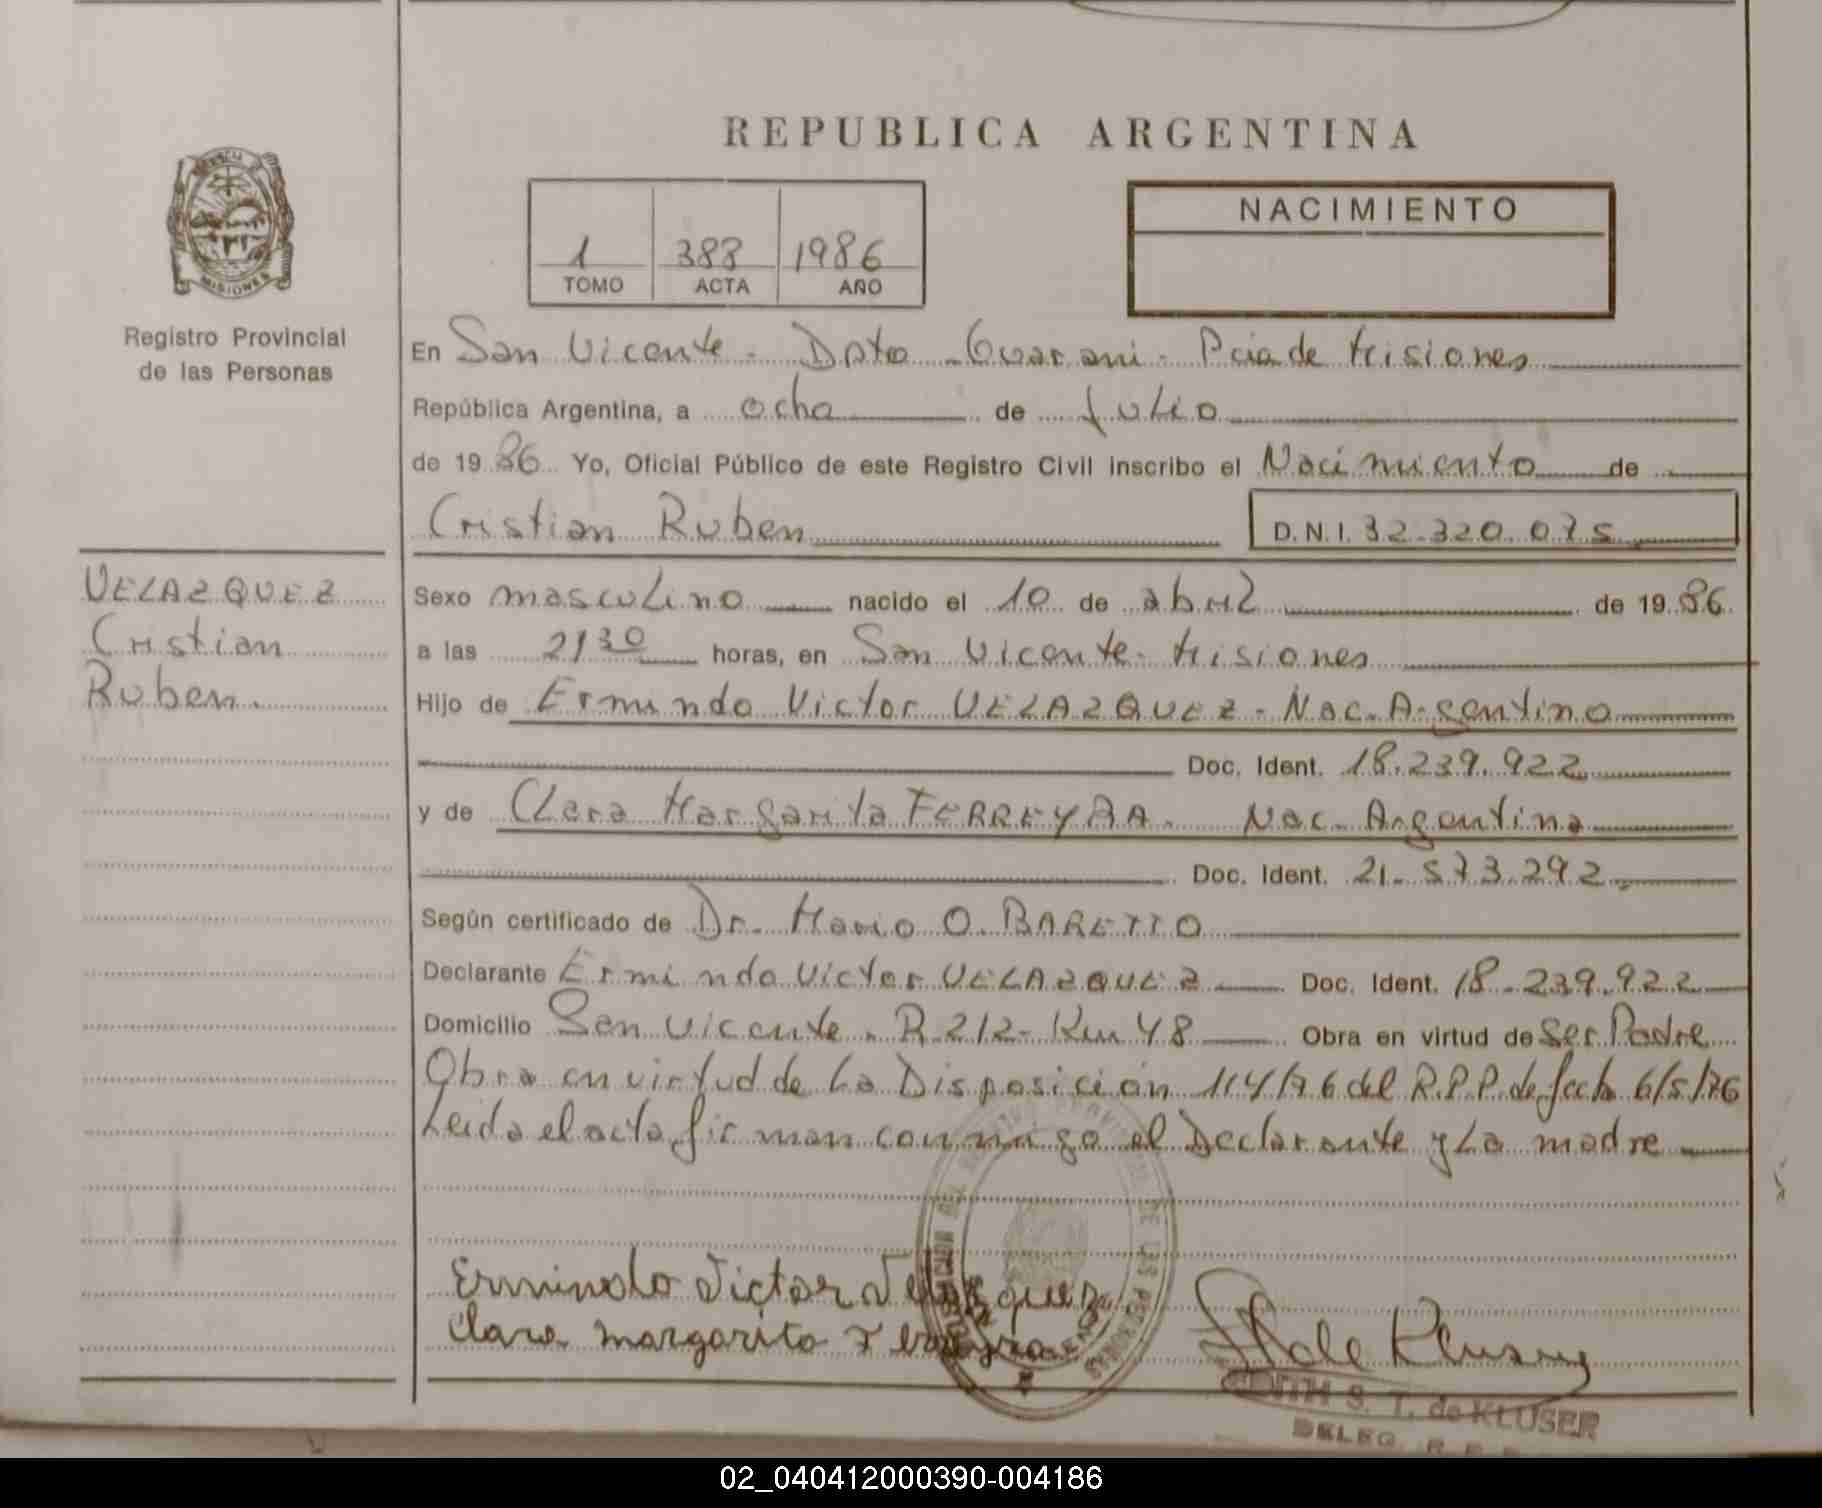 REPUBLICA ARGENTINA
MISIONES
Registro Provincial
de las Personas
1 388 1986
TOMO ACTA AÑO
NACIMIENTO
En San Vicente - Dpto Guarani - Pcia de Misiones
República Argentina, a ocho de Julio
de 1986 Yo, Oficial Público de este Registro Civil inscribo el Nacimiento de
Cristian Ruben D.N.I. 32.320.075
VELAZQUEZ
Cristian
Ruben.
Sexo masculino nacido el 10 de abril de 1986.
a las 21 30 horas, en San Vicente - Misiones
Hijo de Ermindo Victor VELAZQUEZ - Nac. Argentino
Doc. Ident. 18.239.922
y de Clara Margarita FERREYRA - Nac. Argentina
Doc. Ident. 21.573.292
Según certificado de Dr. Mario O. BARETTO
Declarante Ermindo Victor VELAZQUEZ Doc. Ident. 18.239.922
Domicilio San Vicente - R.212 - Km 48 Obra en virtud de Ser Padre
Obra en virtud de La Disposición 114/76 del R.P.P. de fecha 6/5/76
Leida el acta, firman conmigo el Declarante y La madre
Ermindo Victor Velazquez
Clara margarita Ferreyra
EDITH S. T. de KLUSER
DELEG. R.P.P.
02_040412000390-004186